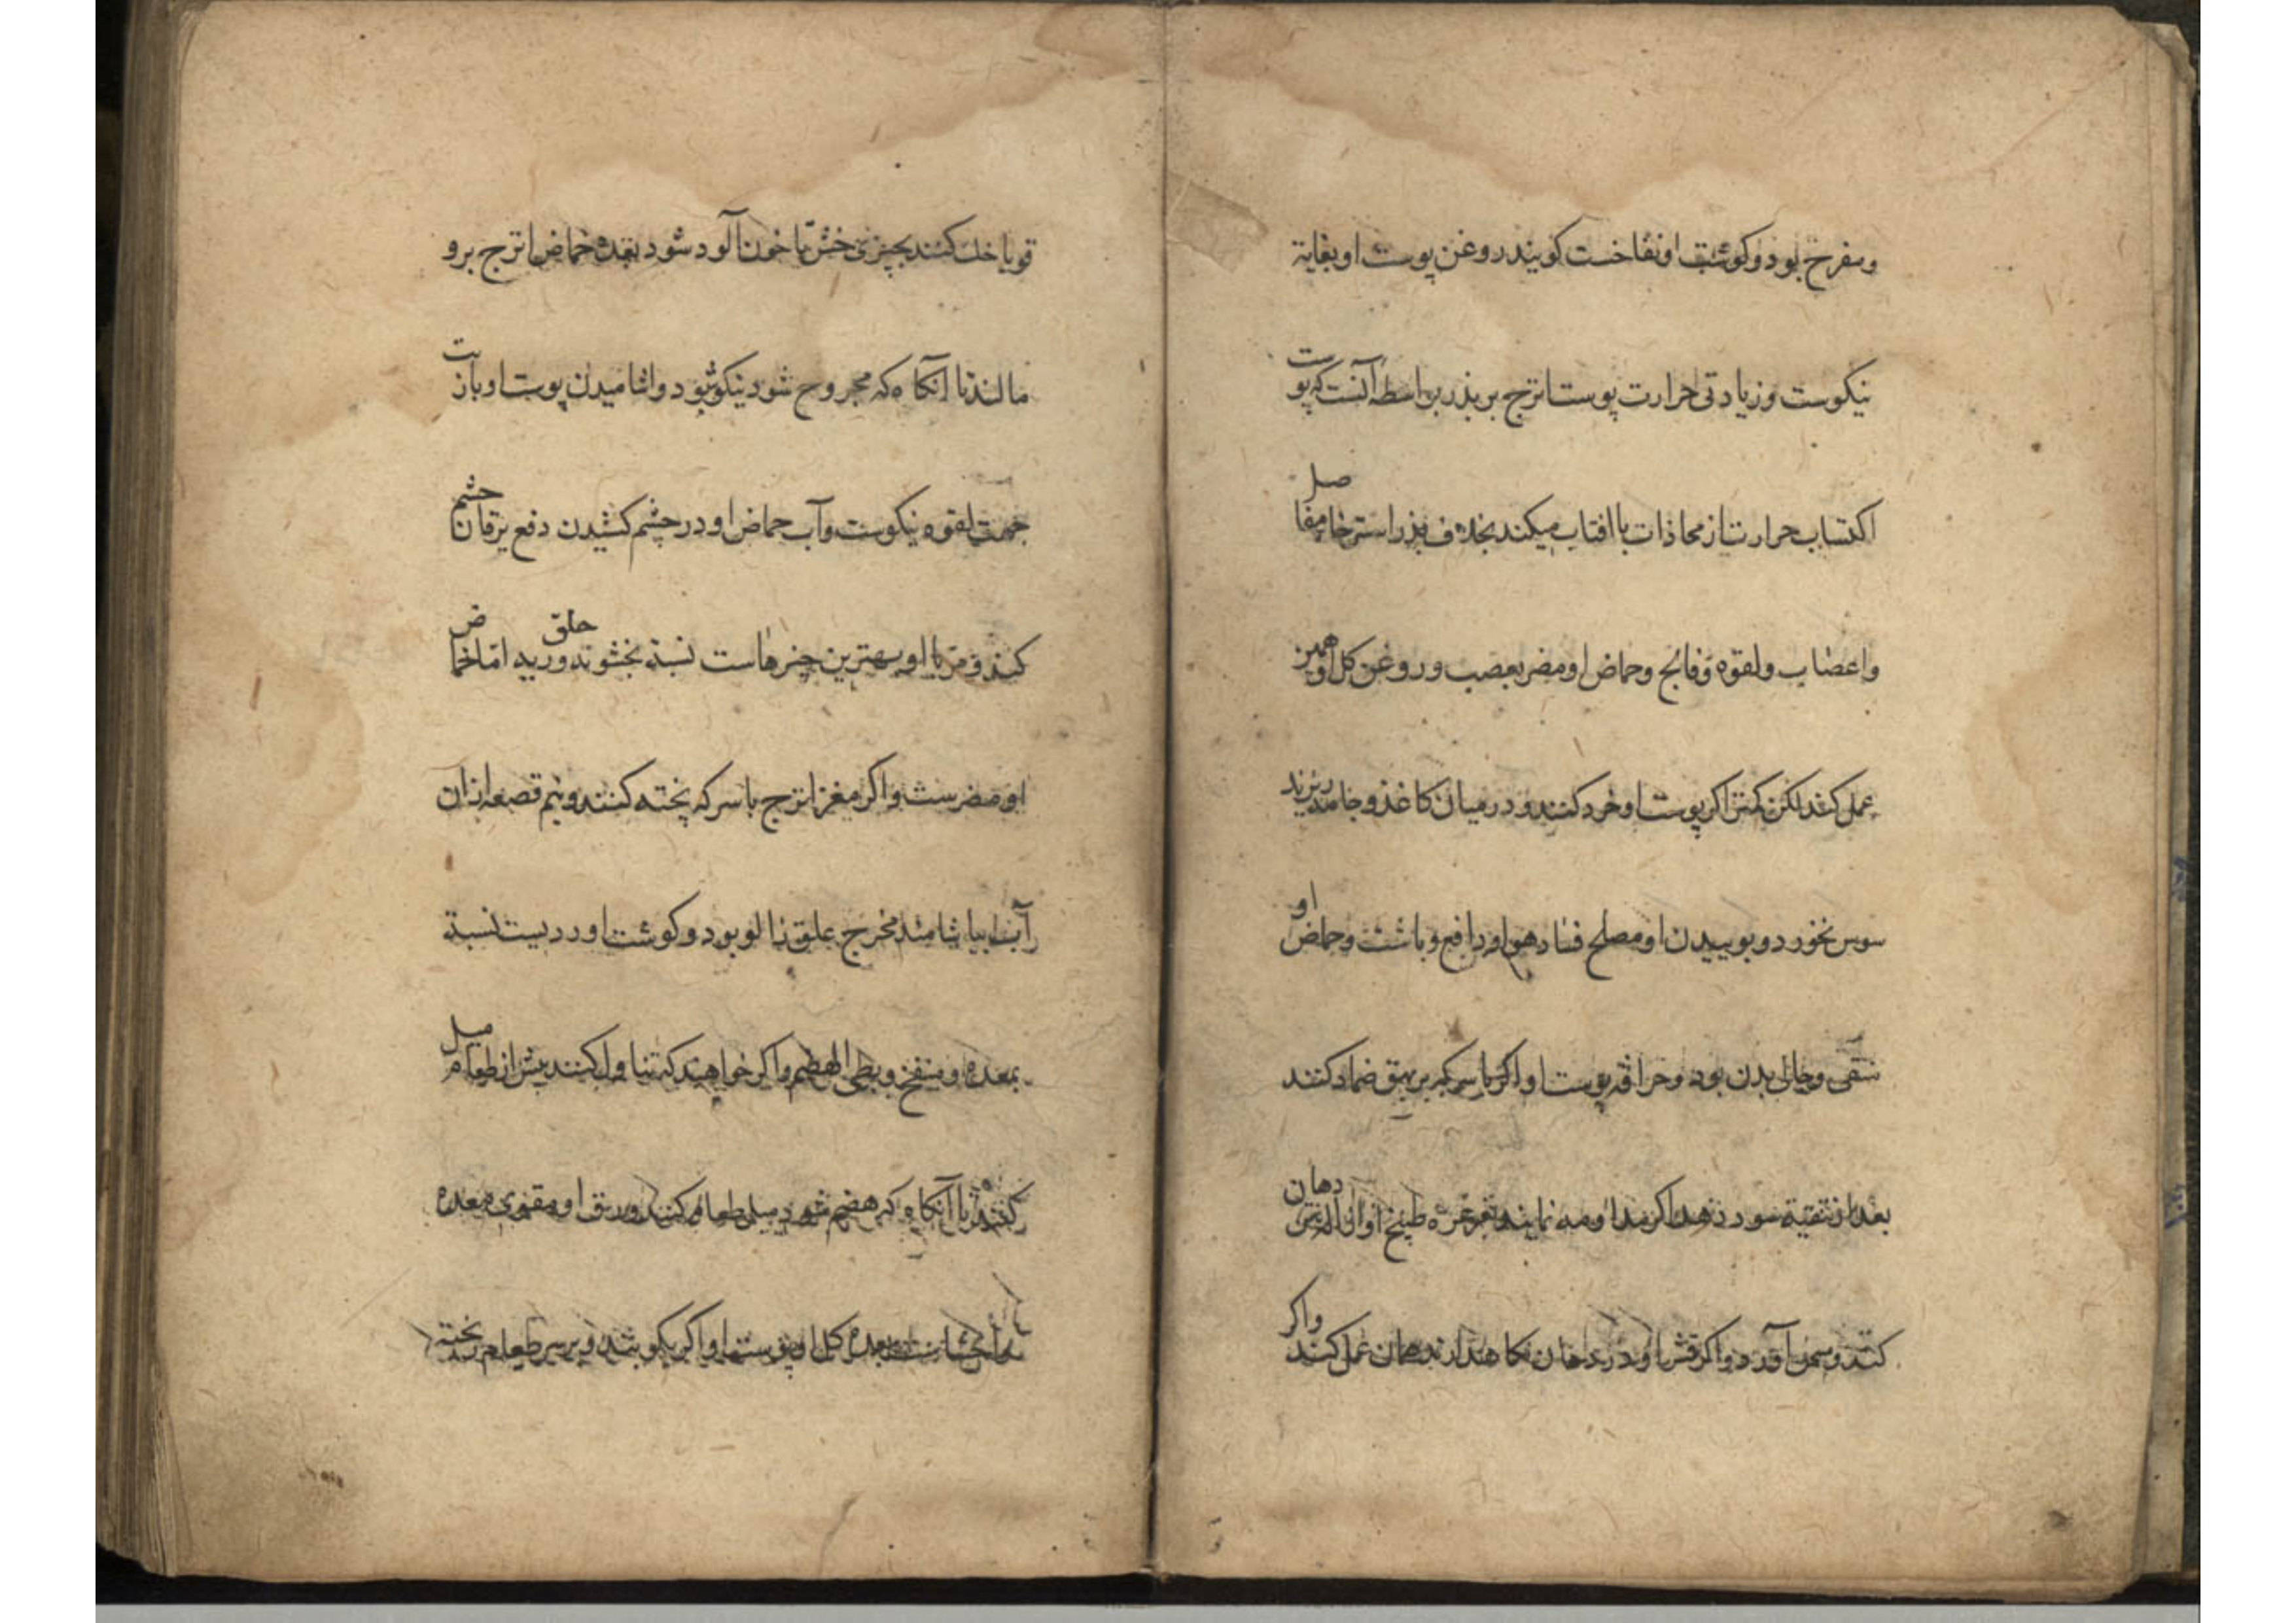 ومفرح بود وکوشت او نفاخست کویند روغن پوست او بغایة
نیکوست وزیادتی حرارت پوست اترج بر بذر بواسطه آنست که پوست
اکتساب حرارت از محاذات باافتاب میکند بخلاف بذر استرخا مفاصل
واعصاب ولقوه وفالج وحماض او مضر بعصب وروغن کل او همین
عمل کند لکن کمتر اکر پوست او خرد کنند ودر میان کاغذ وجامه ریزند
سوس نخورد وبوییدن او مصلح فساد هوا ودافع وباشت وحماض او
منقی وجالی بدن بود وحراقه پوست او اکر با سرکه بر بهق ضماد کنند
بعد از تنقیة سود دهد اکر مداومه نمایند وغرغره طبیخ او ازاله دهان
کند وسمن آورد واکر قشر او در دهان نکاه دارند همان عمل کند واکر
قوبا حك کنند بچیزی خشن تا خون آلود شود بعده حماض اترج برو
مالند تا آنکاه که مجروح شود نیکو شود واشامیدن پوست او بازیت
جهت لقوه نیکوست وآب حماض او در چشم کشیدن دفع یرقان چشم
کند ومربا او بهترین چیزهاست نسبة بخشونة حلق ورید اما حماض
او مضرست واکر مغز اترج با سرکه پخته کنند ونیم قصعه ازان
آب بیاشامند مخرج علق زالو بود وکوشت او ردیست نسبة
بمعده ومنفخ وبطی الهضم واکر خواهند که تناول کنند پیش از طعام میل
کنند تا آنکاه که هضم شود میل طعام کنند وورق او مقوی معده
واحشاست کل او پوست او اکر بکوبند وبر سر طعام پخته